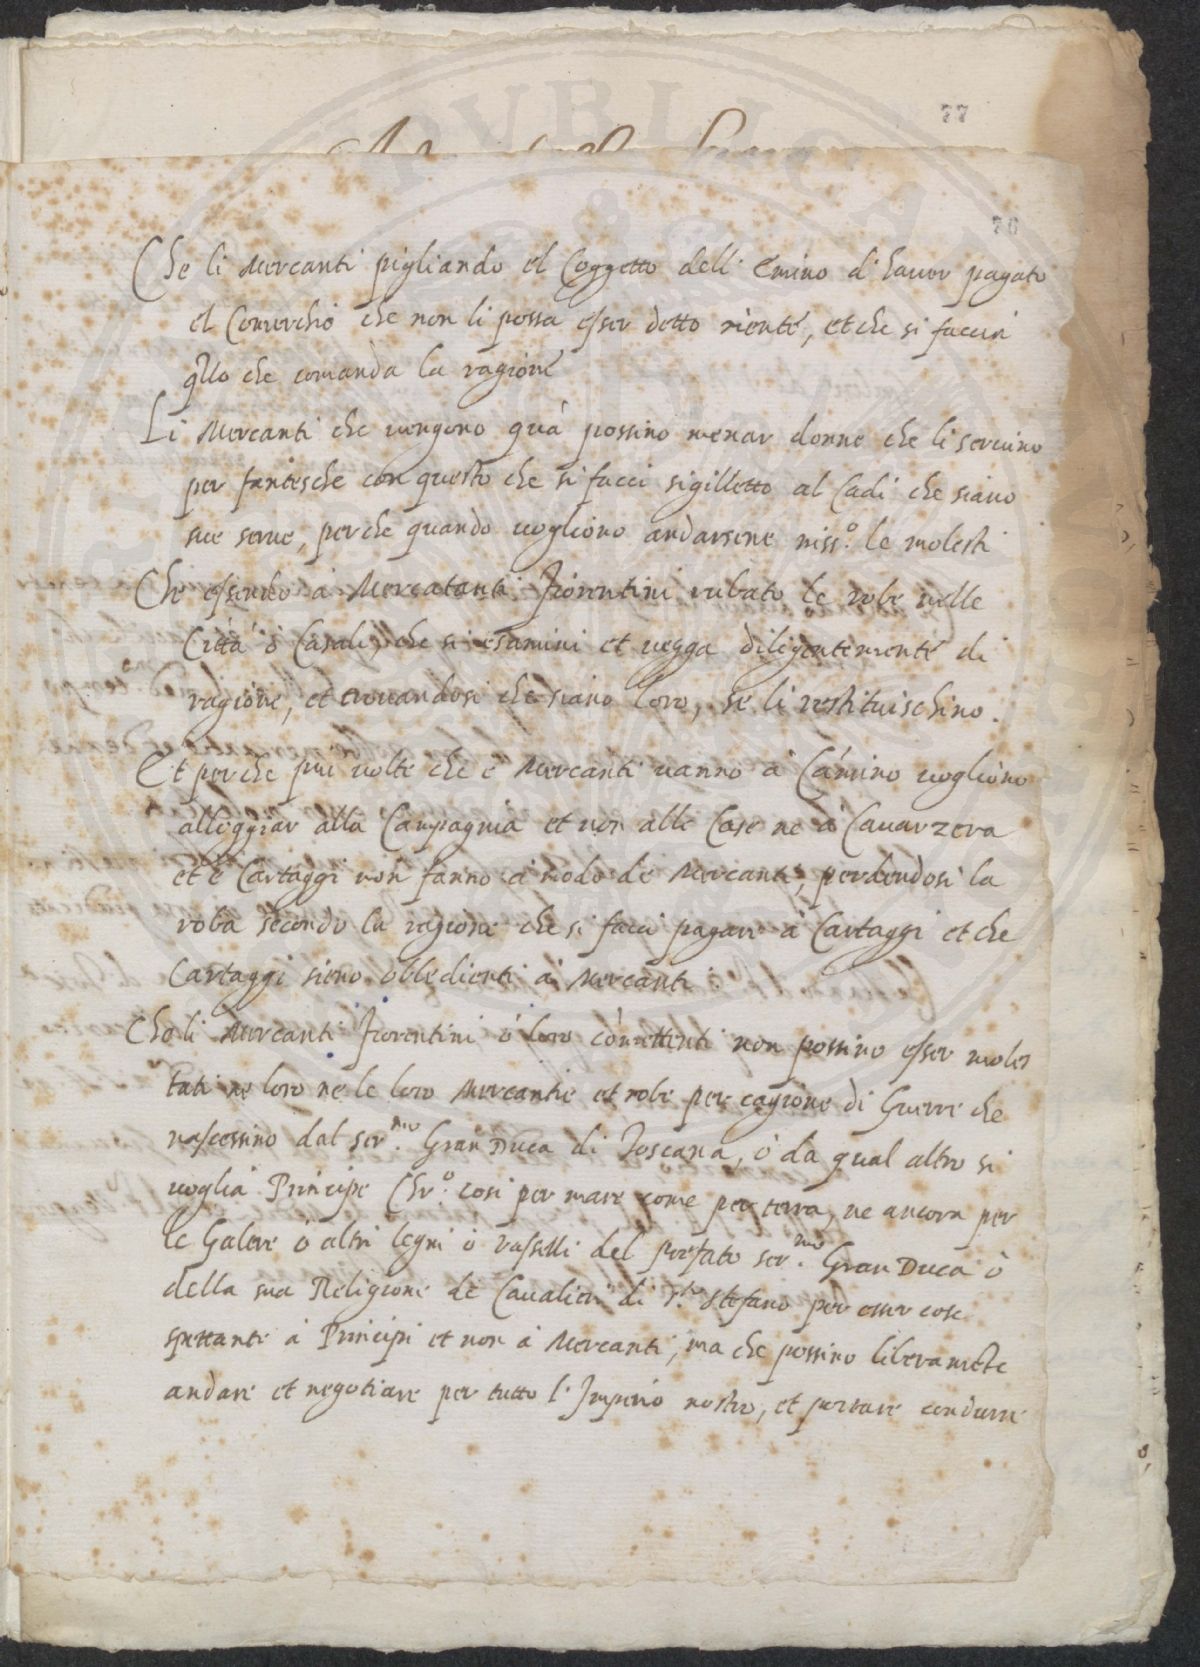 77
76
Che li Mercanti pigliando el Coggetto dell' Emino d' hauer pagato
el Comerchio che non li possa esser detto niente, et che si faccia
qllo che comanda la ragione
Li Mercanti che uengono quà possino menar donne che li seruino
per fantesche con questo che si facci sigilletto al Cadi che siano
sue serue, perche quando uogliono andarsene niss.o le molesti
Che essendo à Mercatanti Fiorentini rubato le robe nelle
Città ò Casali, che si esamini et uegga diligentemente di
ragione, et trouandosi che siano loro, se li restituischino.
Et perche piu uolte che e Mercanti uanno à Camino uogliono
alloggiar alla Campagnia et non alle Case ne à Cauarzera
et e Cartaggi non fanno à modo de Mercanti, perdendosi la
roba secondo la ragione che si facci pagare à Cartaggi et che
Cartaggi sieno obbedienti ai Mercanti.
Che li Mercanti Fiorentini ò loro comettenti non possino esser moles
tati ne loro ne le loro Mercantie et robe per cagione di Guerre che
nascessino dal ser.mo Gran Duca di Toscana, ò da qual altro si
uoglia Principe Chr.o cosi per mare come per terra, ne ancora per
le Galere ò altri legni ò vasselli del prefato ser.mo Gran Duca ò
della sua Religione de Caualieri di S.to Stefano per esser cose
spettanti à Principi et non à Mercanti, ma che possino liberamete
andare et negotiare per tutto l' Imperio nostro, et portare condurre